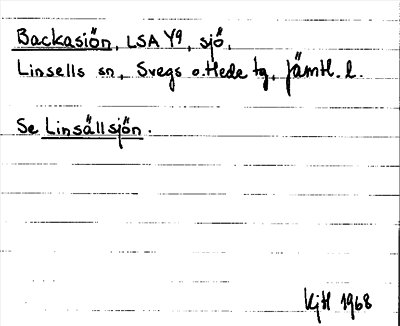 Backasjön, LSA Y9, sjö,
Linsells sn, Svegs o. Hede tg, Jämtl. l.
Se Linsällsjön.
Kjtl 1968